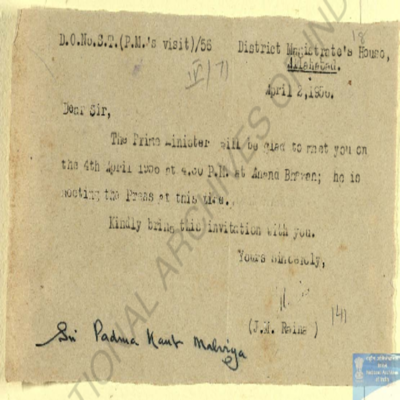 18
D.O.No.S.T.(P.M.'s visit)/56 District Magistrate's House,
Allahabad.
IV/71
April 2,1956.
Dear Sir,
The Prime Minister will be glad to meet you on
the 4th April 1956 at 4.30 P.M. at Anand Bhawan; he is
meeting the Press at this time.
Kindly bring this invitation with you.
Yours sincerely,
(J.M. Raina )
Sri Padma Kant Malviya
NATIONAL ARCHIVES OF INDIA